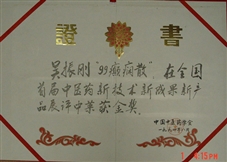 證 書
吴振刚 "99癫痫散" 在全国
首届中医药新技术新成果新产
品展评中荣获金奖。
中国中医药学会